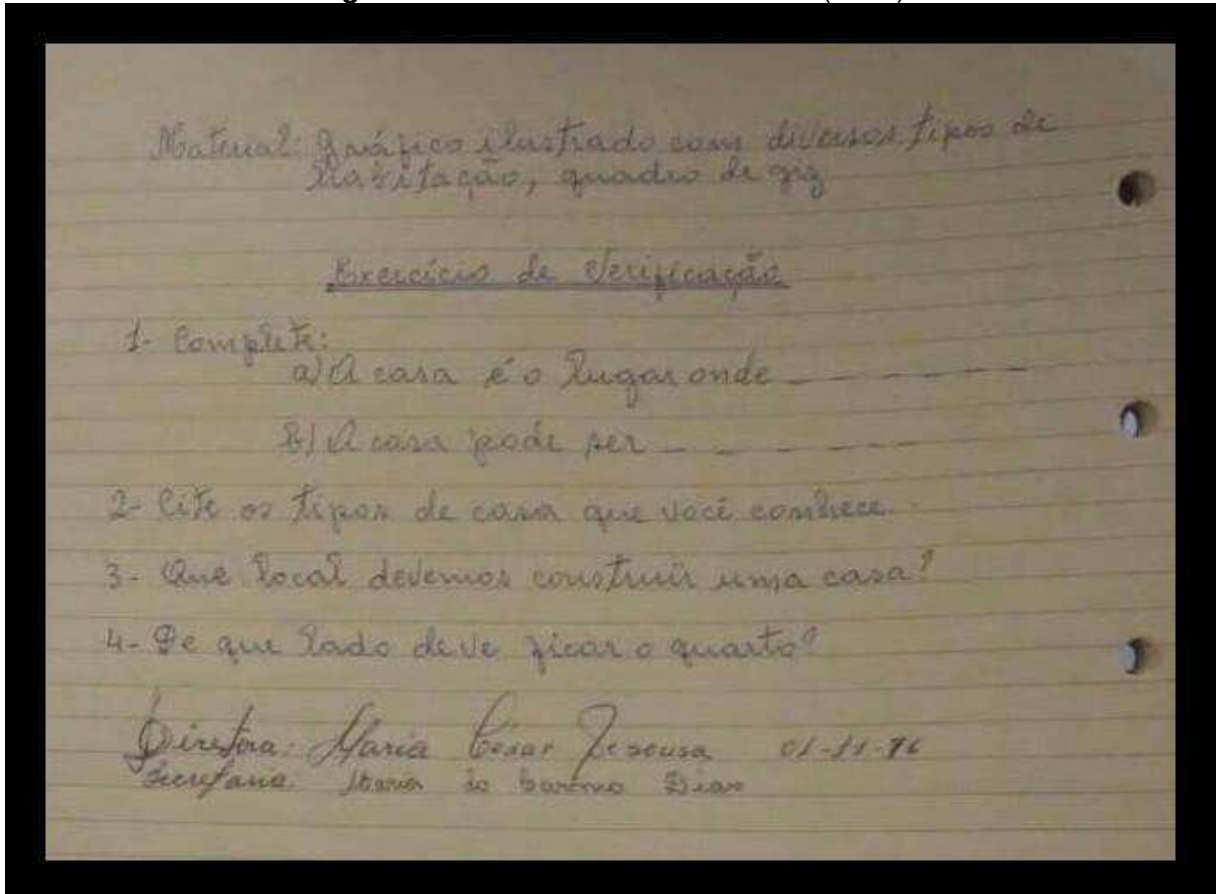 Material: Gráfico ilustrado com diversos tipos de
habitação, quadro de giz
Exercício de Verificação
1- Complete:
a) A casa é o lugar onde - - - - - - -
b) A casa pode ser - - - - - - -
2- Cite os tipos de casa que você conhece.
3- Que local devemos construir uma casa?
4- De que lado deve ficar o quarto?
Diretora: Maria César de sousa 01-11-76
Secretaria. Maria do Carmo Dias